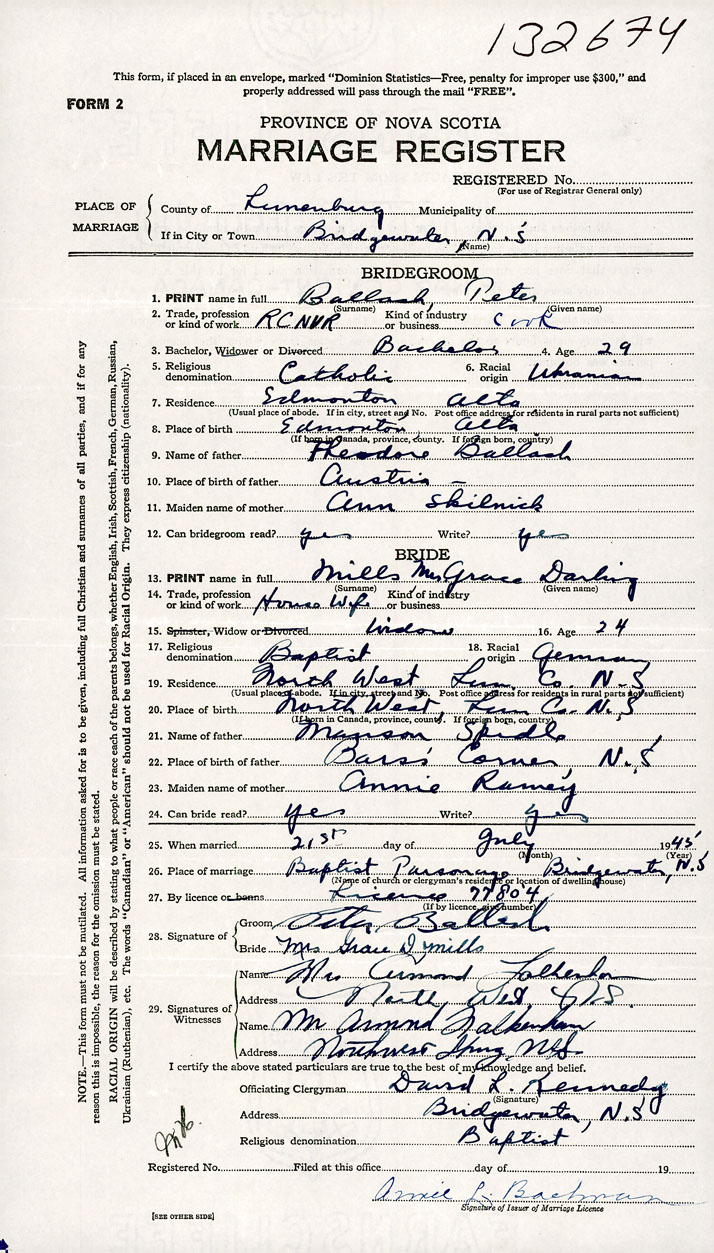 132674
This form, if placed in an envelope, marked “Dominion Statistics—Free, penalty for improper use $300,” and
properly addressed will pass through the mail “FREE”.
FORM 2
PROVINCE OF NOVA SCOTIA
MARRIAGE REGISTER
REGISTERED No.
(For use of Registrar General only)
PLACE OF MARRIAGE
County of Lunenburg Municipality of
If in City or Town Bridgewater, N.S
(Name)
BRIDEGROOM
1. PRINT name in full Ballash, Peter
(Surname) (Given name)
2. Trade, profession or kind of work RCNVR Kind of industry or business Cook
3. Bachelor, Widower or Divorced Bachelor 4. Age 29
5. Religious denomination Catholic 6. Racial origin Ukranian
7. Residence Edmonton Alta
(Usual place of abode. If in city, street and No. Post office address for residents in rural parts not sufficient)
8. Place of birth Edmonton Alta
(If born in Canada, province, county. If foreign born, country)
9. Name of father Theodore Ballash
10. Place of birth of father Austria —
11. Maiden name of mother Ann Skilnick
12. Can bridegroom read? yes Write? yes
BRIDE
13. PRINT name in full Mills Mrs Grace Darling
(Surname) (Given name)
14. Trade, profession or kind of work House Wife Kind of industry or business
15. Spinster, Widow or Divorced Widow 16. Age 24
17. Religious denomination Baptist 18. Racial origin German
19. Residence North West Lun. Co. N.S
(Usual place of abode. If in city, street and No. Post office address for residents in rural parts not sufficient)
20. Place of birth North West, Lun Co. N.S
(If born in Canada, province, county. If foreign born, country)
21. Name of father Manson Spidle
22. Place of birth of father Barss Corner, N.S
23. Maiden name of mother Annie Ramey
24. Can bride read? yes Write? yes
25. When married 21st day of July 1945
(Month) (Year)
26. Place of marriage Baptist Parsonage Bridgewater, N.S
(Name of church or clergyman's residence or location of dwelling house)
27. By licence or banns Licence 77804
(If by licence, give number)
28. Signature of
Groom Peter Ballash
Bride Mrs Grace D Mills
29. Signatures of Witnesses
Name Mrs Armond Falkenham
Address North West, N.S.
Name Mr Armond Falkenham
Address Northwest N.S.
I certify the above stated particulars are true to the best of my knowledge and belief.
Officiating Clergyman David L. Kennedy
(Signature)
Address Bridgewater, N.S
Religious denomination Baptist
Registered No. Filed at this office day of 19
Annie L. Bachman
Signature of Issuer of Marriage Licence
[SEE OTHER SIDE]
NOTE.—This form must not be mutilated. All information asked for is to be given, including full Christian and surnames of all parties, and if for any
reason this is impossible, the reason for the omission must be stated.
RACIAL ORIGIN will be described by stating to what people or race each of the parents belongs, whether English, Irish, Scottish, French, German Russian,
Ukrainian (Ruthenian), etc. The words “Canadian” or “American” should not be used for Racial Origin. They express citizenship (nationality).